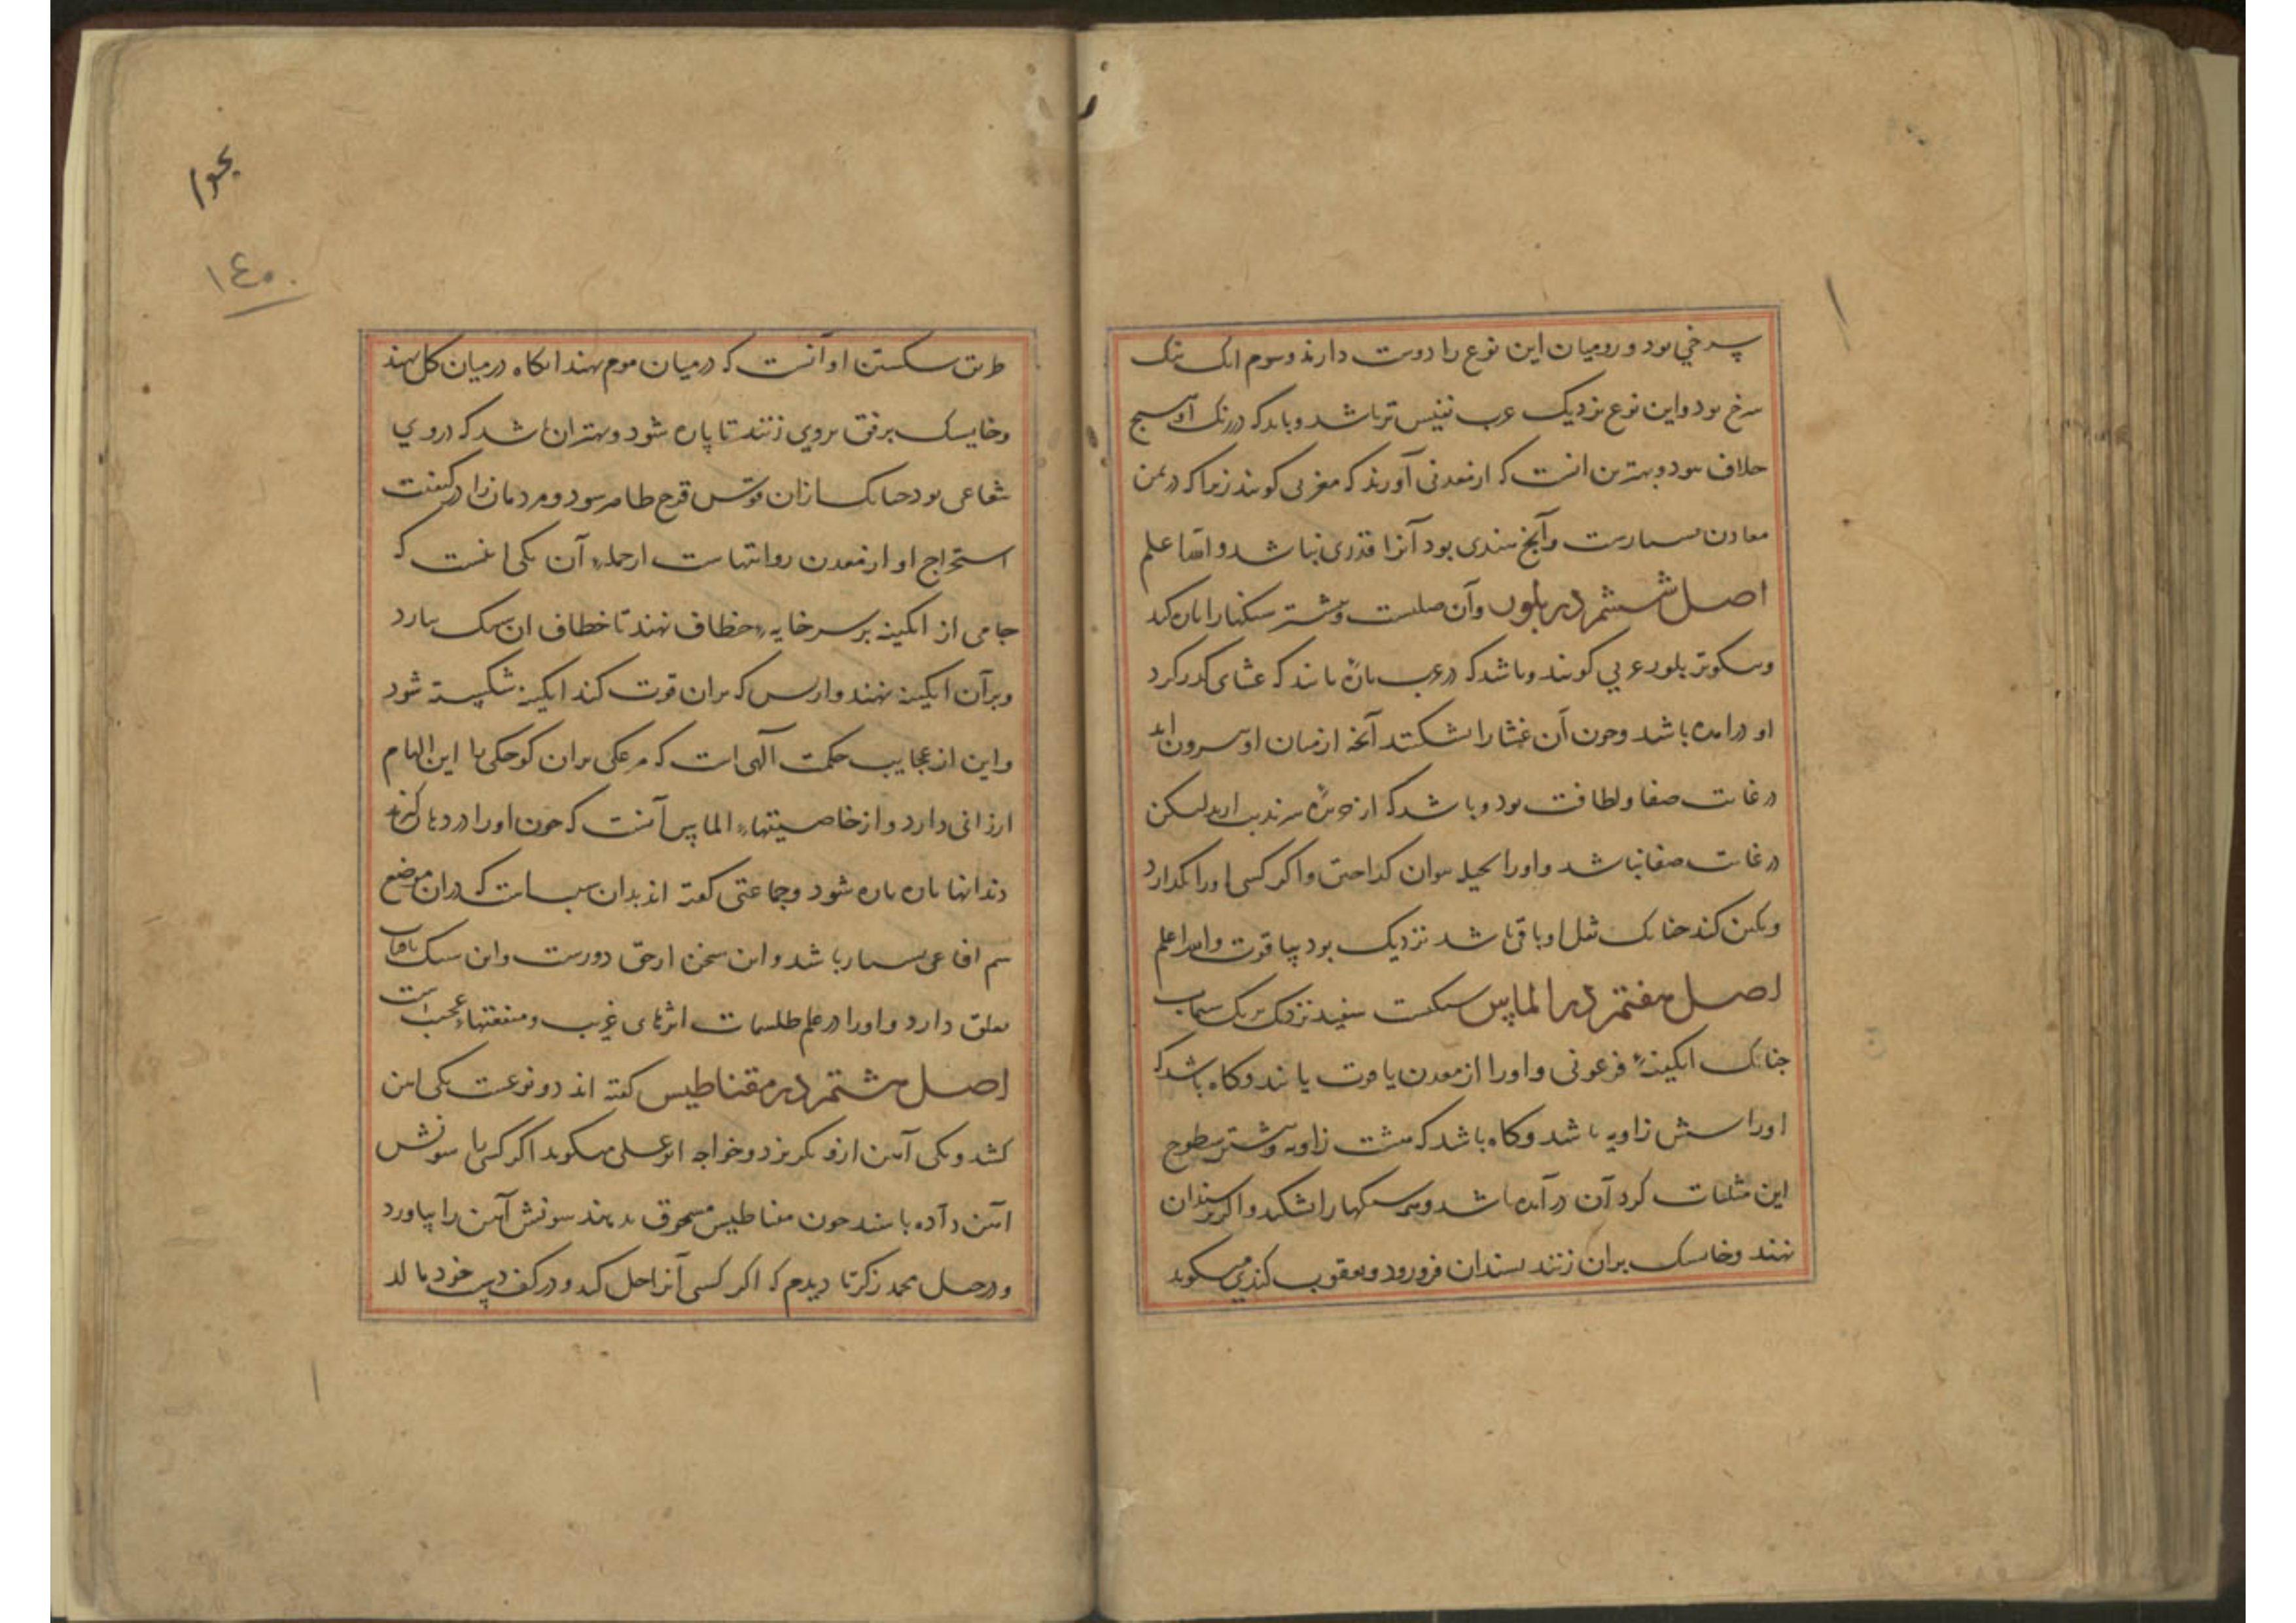 بسرخی بود و رومیان این نوع را دوست دارند و سوم انک نیک
سرخ بود و این نوع نزدیک عرب نفیس تر باشد و باید که در رنک او هیچ
خلاف نبود و بهترین انست که از معدنی آورند که مغربی کویند زیرا که در یمن
معادن بسیارست و آنچ هندی بود آنرا قدری نباشد والله اعلم
اصل ششم در بلور و آن صلبست و بیشتر سنکها را پاره کند
و نیکوتر بلور عربی کویند و باشد که در عرب پاره یابند که غشای کدر کرد
او درامده باشد و چون آن غشا را بشکنند آنچه از میان او بیرون اید
در غایت صفا و لطافت بود و باشد که از جزیره سرندیب ارند لیکن
در غایت صفا نباشد و اورا بحیل بتوان کداختن و اکر کسی اورا بکدازد
و رنکین کند چنانک ثقل او باقی باشد نزدیک بود بیاقوت والله اعلم
اصل هفتم در الماس سنکیست سفید نزدیک برنک سیماب
چنانک ابکینهٔ فرعونی و اورا از معدن یاقوت یابند و کاه باشد که
اورا شش زاویه باشد و کاه باشد که هشت زاویه و بیشتر سطوح
این مثلثات کرد آن درآمده باشد و همه سنکها را بشکند و اکر بر سندان
نهند و خایسک بران زنند بسندان فرو رود و یعقوب کندی میکوید
طریق شکستن او آنست که در میان موم نهند انکاه در میان کل نهند
و خایسک برفق بروی زنند تا پاره شود و بهتر ان باشد که در وی
شعاعی بود چنانک ازان قوس قزح ظاهر شود و مردمان را در کیفیت
استخراج او از معدن روایتهاست از جملهٔ آن یکی اینست که
جامی از ابکینه بر سر خایهٔ خطاف نهند تا خطاف ان سنک بیارد
و برآن ابکینه نهند و از بس که بران قوت کند ابکینه شکسته شود
و این از عجایب حکمت آلهی است که مرغکی بران کوچکی با این الهام
ارزانی دارد و از خاصیتهاء الماس آنست که چون اورا در دهان کیرند
دندانها پاره پاره شود و جماعتی کفته اند بدان سبب است که دران موضع
سم افاعی بسیار باشد و این سخن از حق دورست و این سنک بافتاب
تعلق دارد و اورا در علم طلسمات اثرهای غریب و منفعتهاء عجیب است
اصل هشتم در مقناطیس کفته اند دو نوعست یکی اهن
کشد و یکی آهن ازو بکریزد و خواجه ابو علی میکوید اکر کسی با سونش
اهن داده باشند چون مغناطیس مسحوق بدهند سونش آهن را بیاورد
و در حیل محمد زکریا دیدم که اکر کسی آنرا حل کند و در کف دست خود مالد
۱٤۰